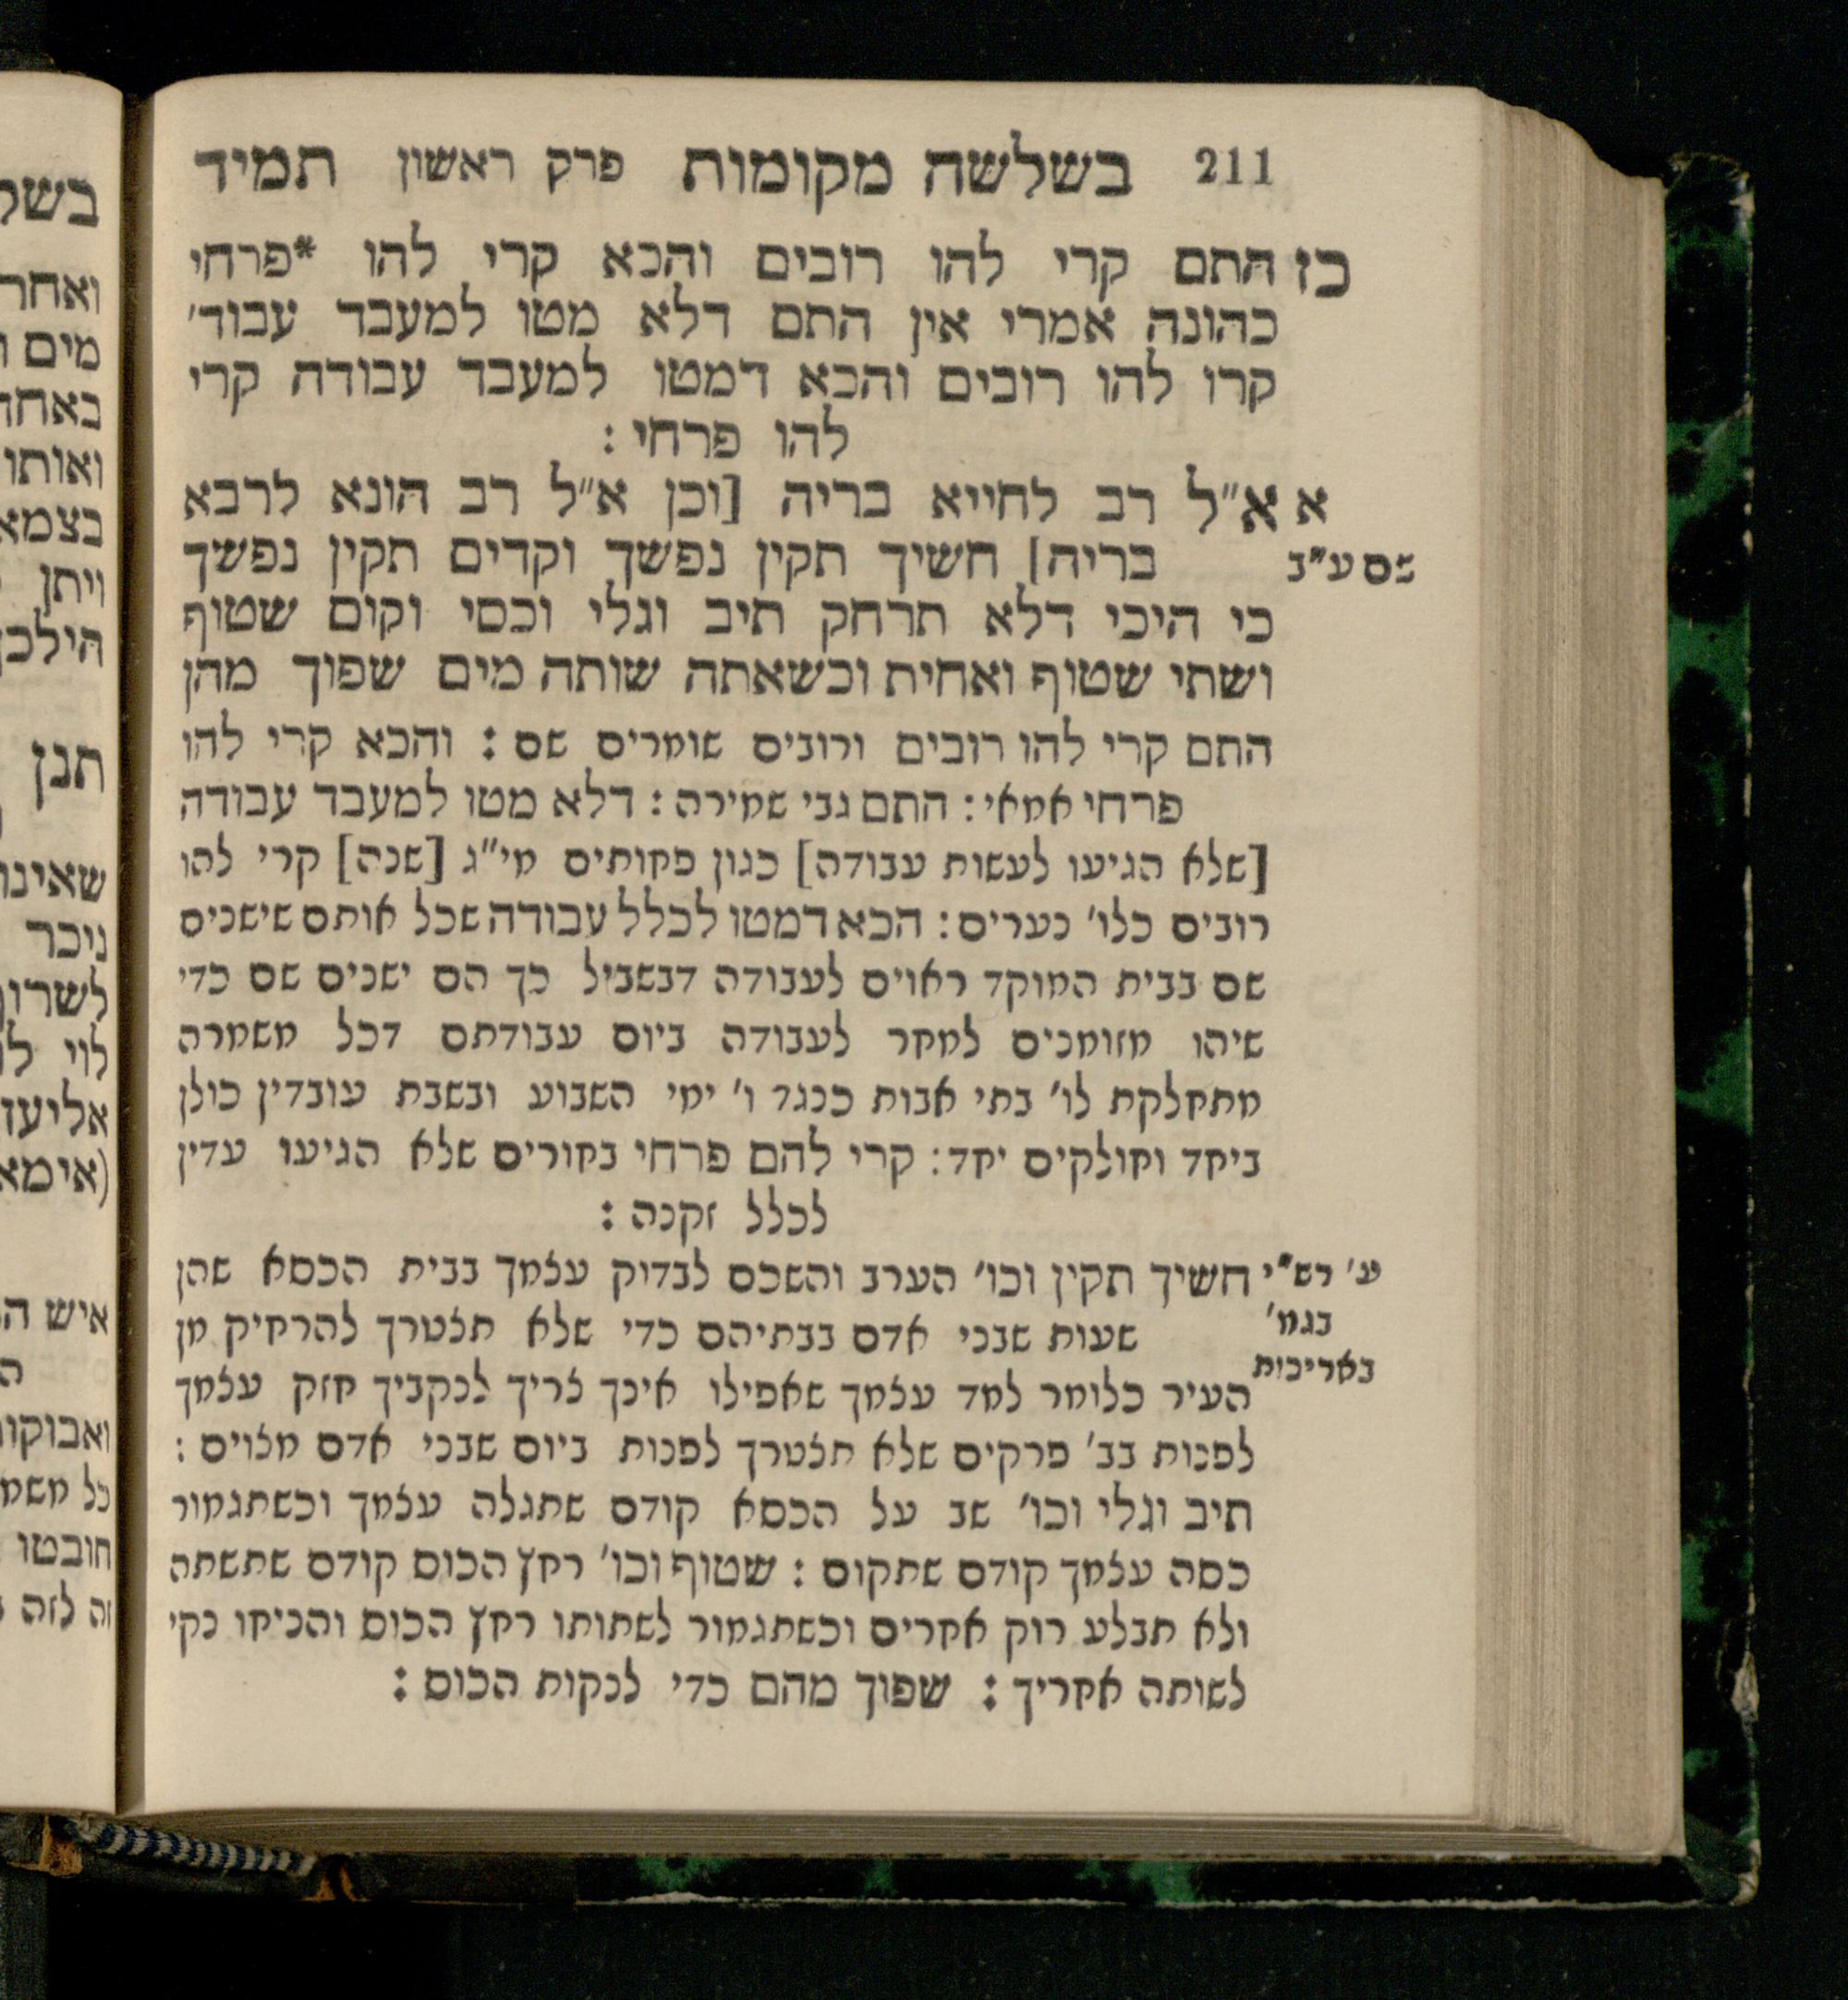 211 בשלשה מקומות פרק ראשון תמיד
כז התם קרי להו רובים והכא קרי להו *פרחי
כהונה אמרי אין התם דלא מטו למעבד עבוד׳
קרו להו רובים והכא דמטו למעבד עבודה קרי
להו פרחי :
א א״ל רב לחייא בריה [וכן א״ל רב הונא לרבא
שם ע״ב בריה] חשיך תקין נפשך וקדים תקין נפשך
כי היכי דלא תרחק תיב וגלי וכסי וקום שטוף
ושתי שטוף ואחית וכשאתה שותה מים שפוך מהן
התם קרי להו רובים ורובים שומרים שם : והכא קרי להו
פרחי אמאי : התם גבי שמירה : דלא מטו למעבד עבודה
[שלא הגיעו לעשות עבודה] כגון פחותים מי״ג [שנה] קרי להו
רובים כלו׳ נערים : הכא דמטו לכלל עבודה שכל אותם שישנים
שם בבית המוקד ראוים לעבודה דבשביל כך הם ישנים שם כדי
שיהו מזומנים למחר לעבודה ביום עבודתם דכל משמרה
מתחלקת לו׳ בתי אבות כנגד ו׳ ימי השבוע ובשבת עובדין כולן
ביחד וחולקים יחד : קרי להם פרחי בחורים שלא הגיעו עדין
לכלל זקנה :
ע׳ רש״י חשיך תקין וכו׳ הערב והשכם לבדוק עצמך בבית הכסא שהן
בגמ׳ שעות שבני אדם בבתיהם כדי שלא תצטרך להרחיק מן
באריכות העיר כלומר למד עצמך שאפילו אינך צריך לנקביך חזק עצמך
לפנות בב׳ פרקים שלא תצטרך לפנות ביום שבני אדם מצוים :
תיב וגלי וכו׳ שב על הכסא קודם שתגלה עצמך וכשתגמור
כסה עצמך קודם שתקום : שטוף וכו׳ רחץ הכוס קודם שתשתה
ולא תבלע רוק אחרים וכשתגמור לשתותו רחץ הכוס והניחו נקי
לשותה אחריך : שפוך מהם כדי לנקות הכוס :